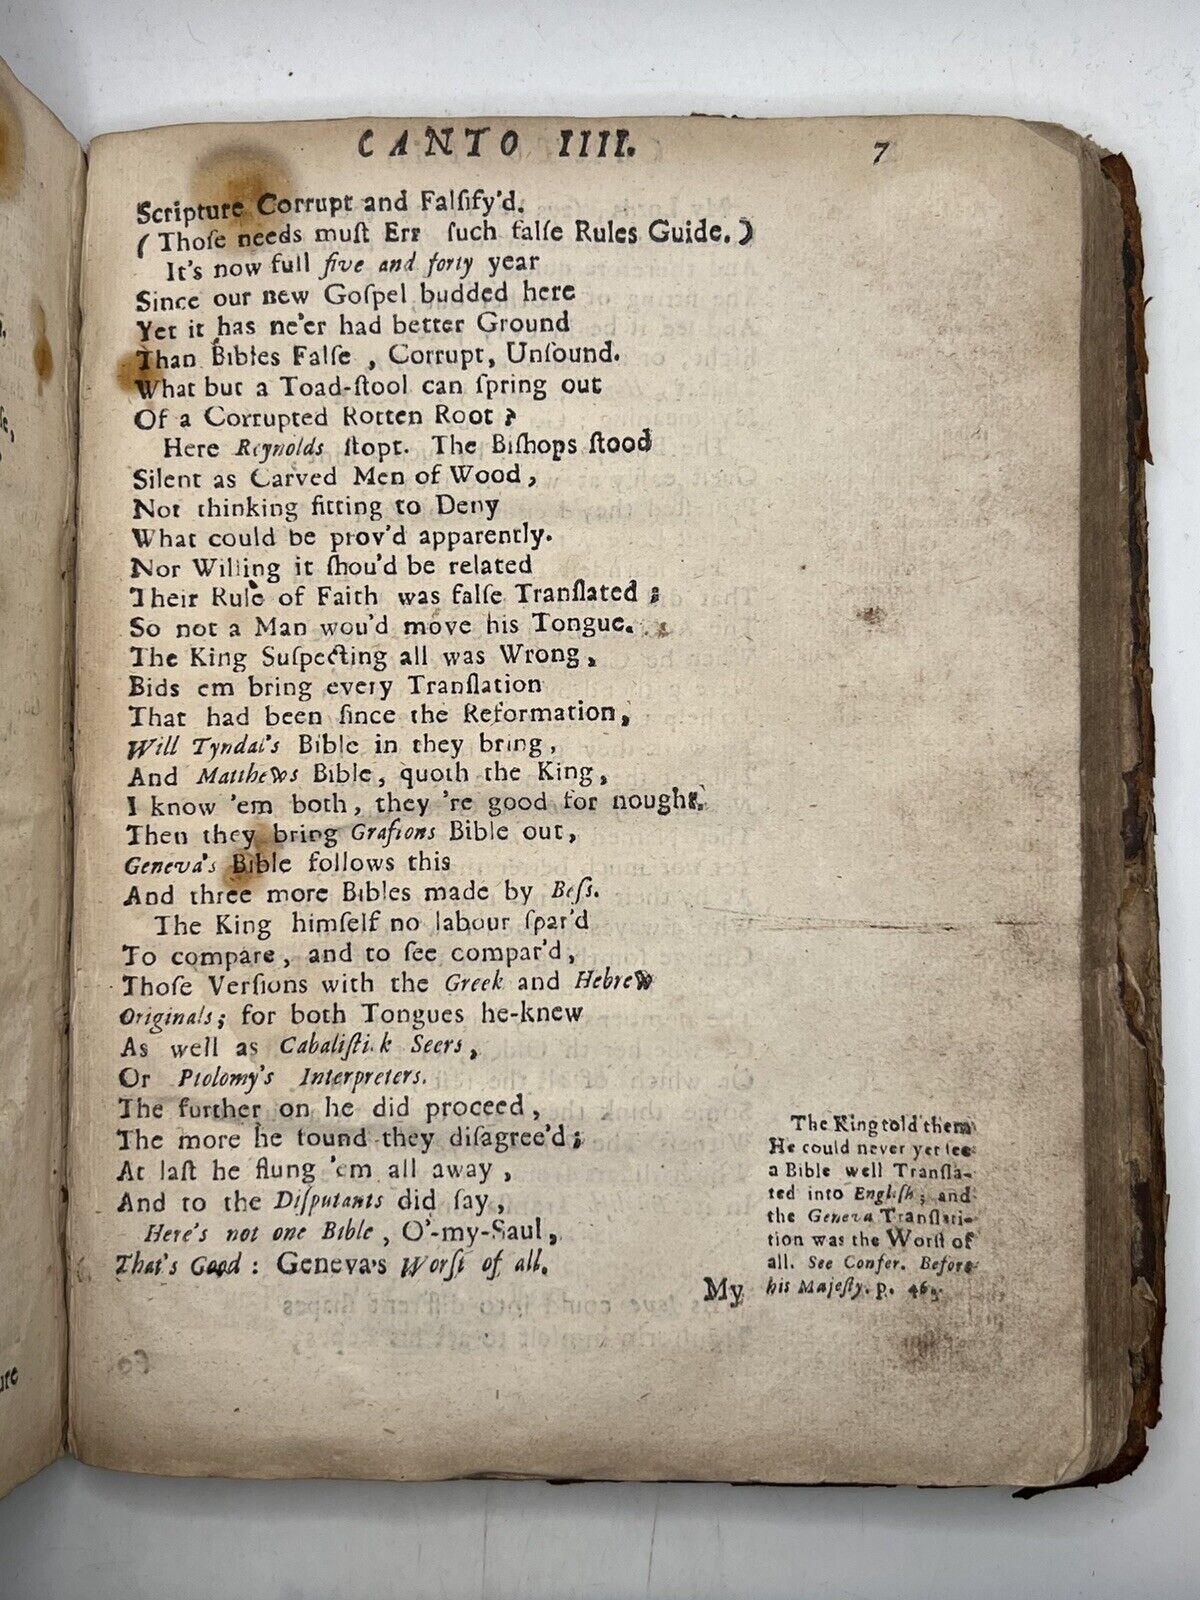 CANTO IIII. 7
Scripture Corrupt and Falſify'd.
(Thoſe needs muſt Err ſuch falſe Rules Guide.)
It's now full five and forty year
Since our new Goſpel budded here
Yet it has ne'er had better Ground
Than Bibles Falſe , Corrupt, Unſound.
What but a Toad-ſtool can ſpring out
Of a Corrupted Rotten Root ?
Here Reynolds ſtopt. The Biſhops ſtood
Silent as Carved Men of Wood ,
Not thinking fitting to Deny
What could be prov'd apparently.
Nor Willing it ſhou'd be related
Their Rule of Faith was falſe Tranſlated ;
So not a Man wou'd move his Tongue.
The King Suſpecting all was Wrong ,
Bids em bring every Tranſlation
That had been ſince the Reformation ,
Will Tyndal's Bible in they bring ,
And Matthews Bible , quoth the King ,
I know 'em both , they 're good for nought.
Then they bring Grafions Bible out ,
Geneva's Bible follows this
And three more Bibles made by Beſs.
The King himſelf no labour ſpar'd
To compare , and to ſee compar'd ,
Thoſe Verſions with the Greek and Hebrew
Originals ; for both Tongues he-knew
As well as Cabaliſtick Seers ,
Or Ptolomy's Interpreters.
The further on he did proceed ,
The more he found they diſagree'd ;
At laſt he flung 'em all away ,
And to the Diſputants did ſay ,
Here's not one Bible , O'-my-Saul ,
That's Good : Geneva's Worſt of all.
The King told them
He could never yet ſee
a Bible well Tranſla-
ted into Engliſh ; and
the Geneva Tranſlati-
tion was the Worſt of
all. See Confer. Before
his Majeſty. p. 46.
My